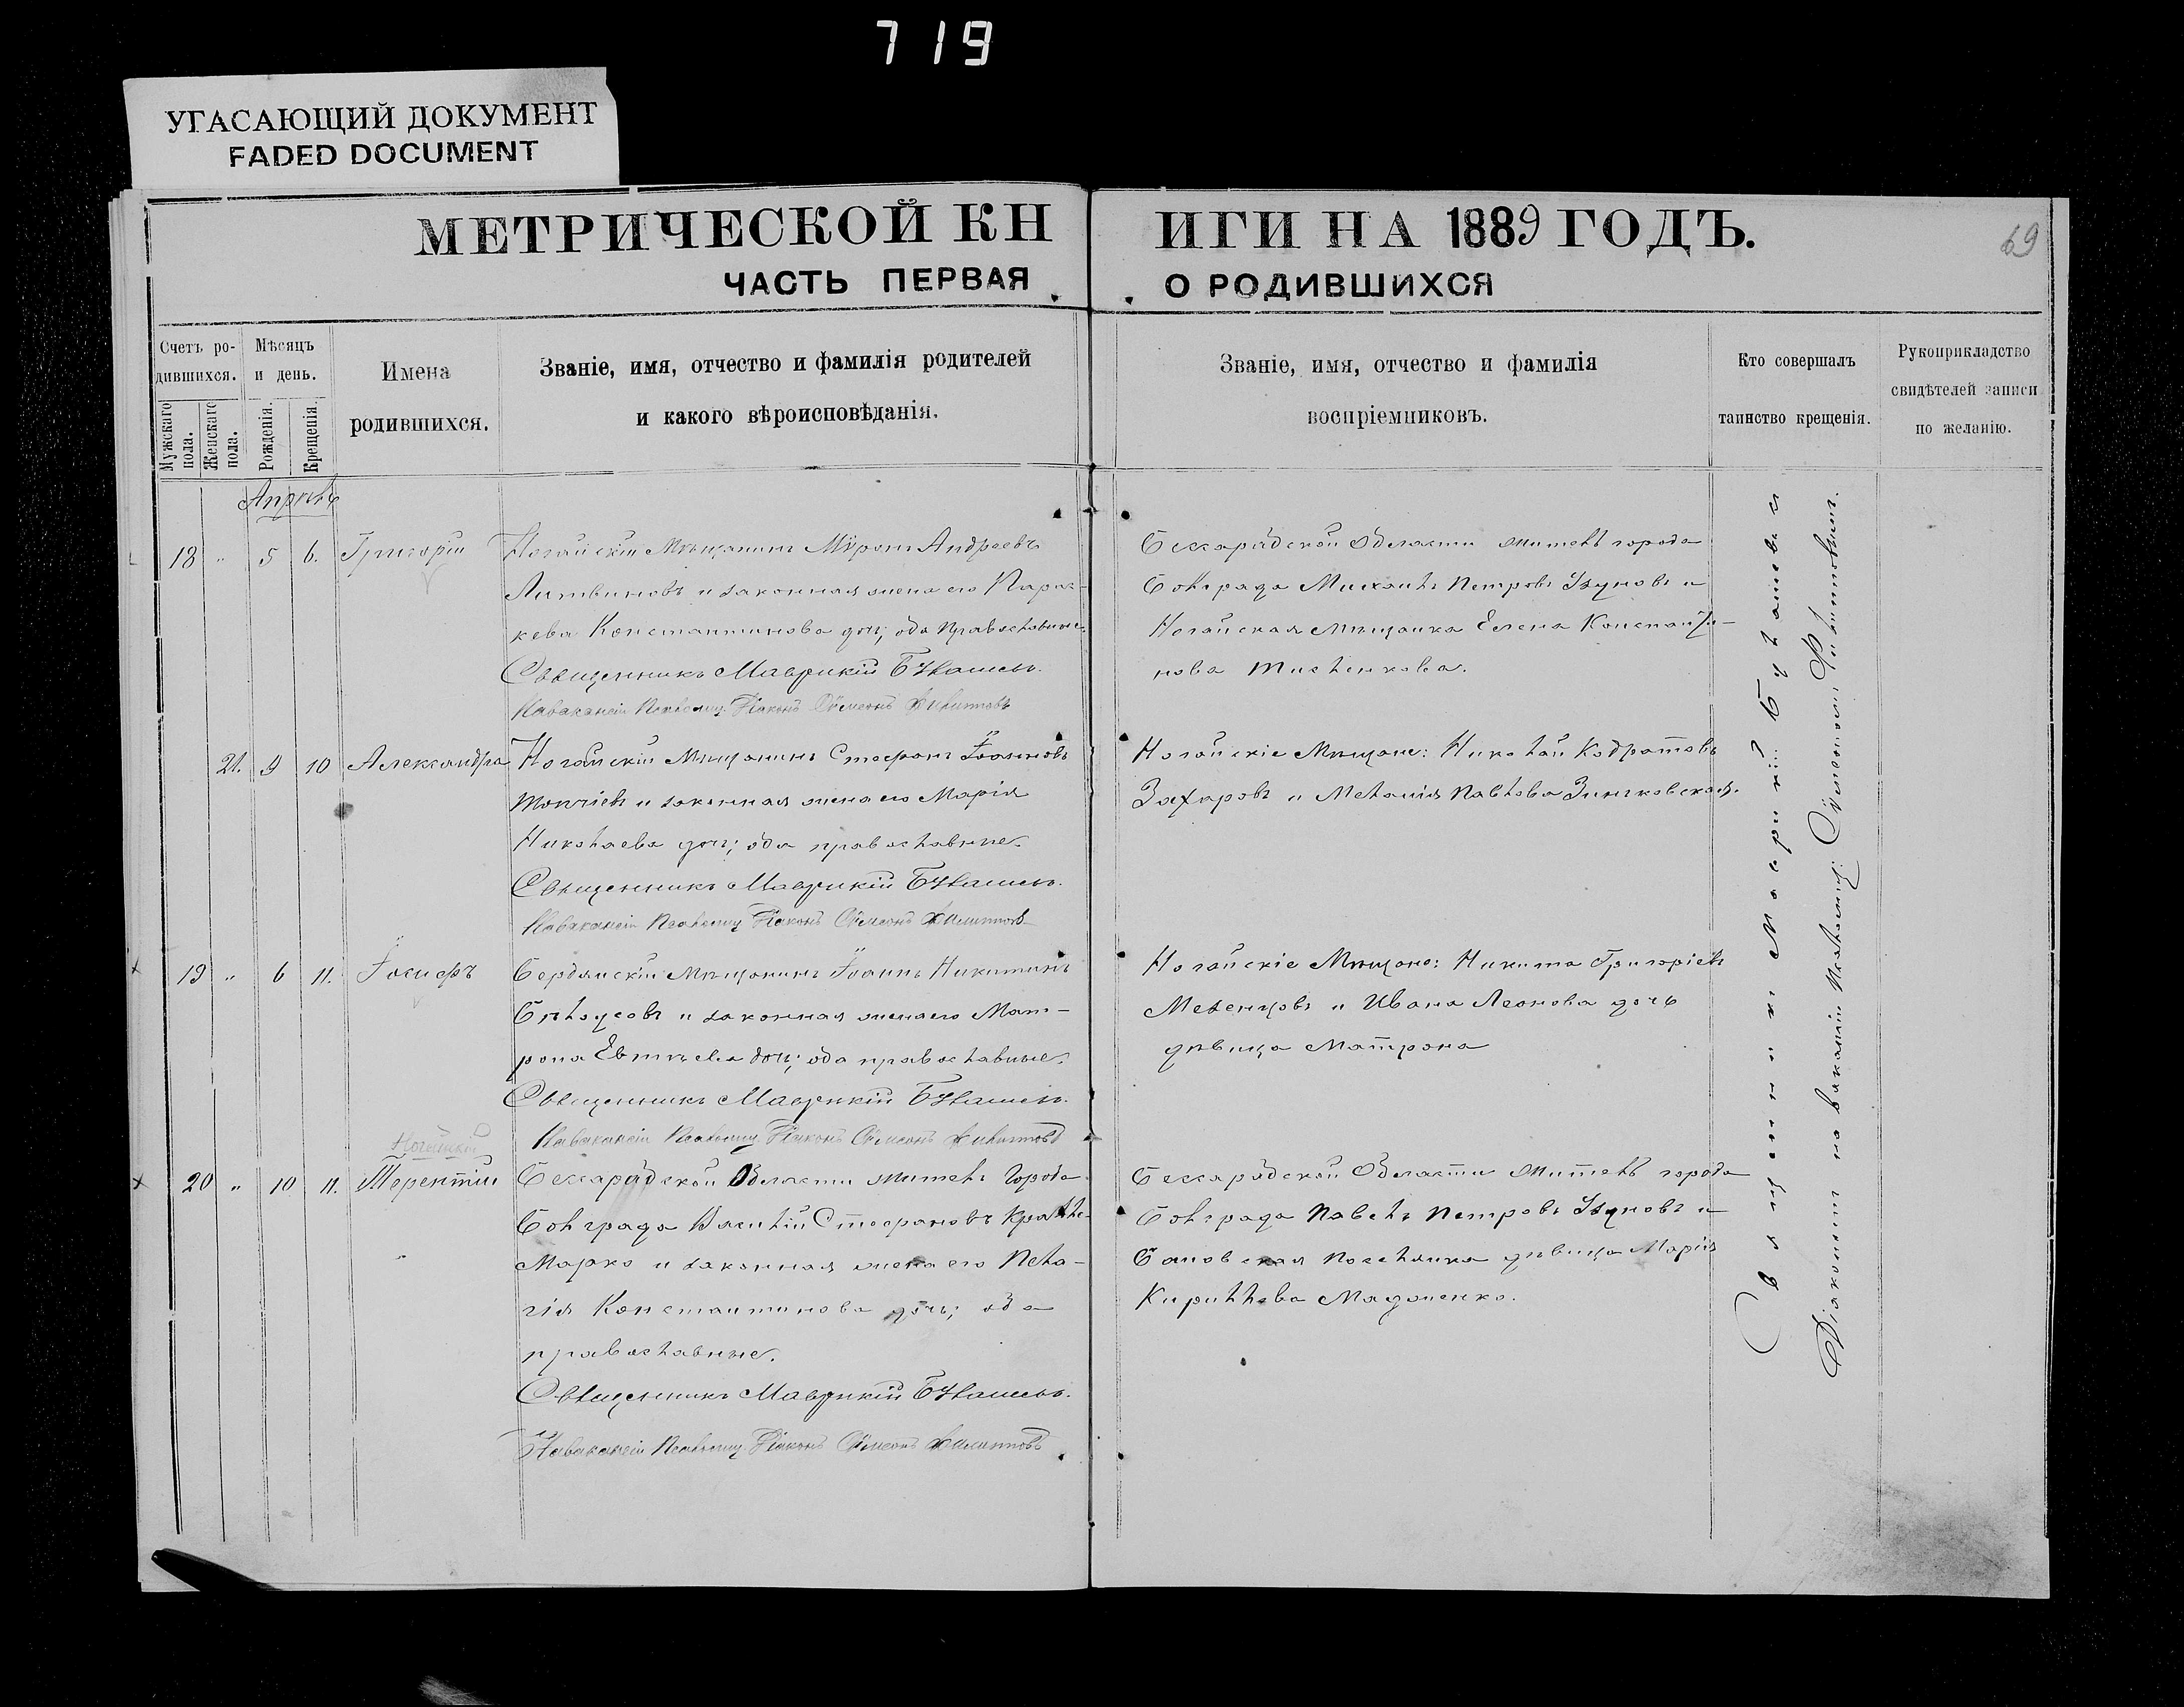 719
УГАСАЮЩИЙ ДОКУМЕНТ
FADED DOCUMENT
МЕТРИЧЕСКОЙ КНИГИ НА 1889 ГОДЪ.
69
ЧАСТЬ ПЕРВАЯ О РОДИВШИХСЯ
Счетъ родившихся.
Мужскаго пола.
Женскаго пола.
Мѣсяцъ и день.
Рожденія.
Крещенія.
Имена
родившихся.
Званіе, имя, отчество и фамилія родителей
и какого вѣроисповѣданія.
Званіе, имя, отчество и фамилія
воспріемниковъ.
Кто совершалъ
таинство крещенія.
Рукоприкладство
свидѣтелей записи
по желанію.
Апрѣль
18 " 5 6. Григорій
Ногайскій Мѣщанинъ Мѵронъ Андреевъ
Литвиновъ и законная жена его Парас-
кева Константинова доч; оба православные
Священникъ Маврикій
На вакансіи Псаломщ. Діаконъ Сѵмеонъ Филипповъ
Бессарабской Области житель города
Болграда Михаилъ Петровъ Узуновъ и
Ногайская Мѣщанка Елена Константи-
нова
21. 9 10 Александра
Ногайскій Мѣщанинъ Стефанъ Іоанновъ
Топчіевъ и законная жена его Марія
Николаева доч; оба православные.
Священникъ Маврикій
На вакансіи Псаломщ Діаконъ Сѵмеонъ Филипповъ
Ногайскіе Мѣщане: Николай Кодратовъ
Захаровъ и Меланія Павлова Зиньковская.
19 " 6 11. Іосифъ
Бердянскій Мѣщанинъ Іоаннъ Никитинъ
Бѣлоусовъ и законная жена его Мат-
рона доч; оба православные.
Священникъ Маврикій
На вакансіи Псаломщ Діаконъ Сѵмеонъ Филипповъ
Ногайскіе Мѣщане: Никита Григоріевъ
и Ивана Леонова дочь
дѣвица Матрона
20 " 10 11. Терентій
Бессарабской Области житель Города
Болграда Василій Стефановъ
Марко и законная жена его Пела-
гія Константинова дочь; оба
православные.
Священникъ Маврикій
На вакансіи Псаломщ Діаконъ Сѵмеонъ Филипповъ
Бессарабской Области житель города
Болграда Павелъ Петровъ Узуновъ и
поселянка дѣвица Марія
Кириллова
Священникъ Маврикій
Діакономъ на вакансіи Псаломщ: Сѵмеономъ Филипповымъ.